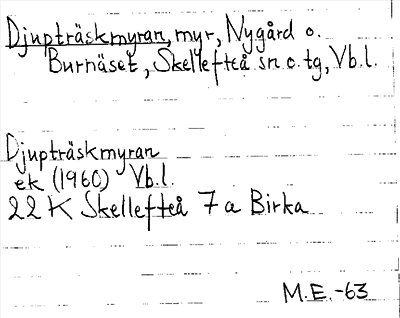 Djupträskmyran, myr, Nygård o.
Burnäset, Skellefteå sn o. tg, Vb.l.
Djupträskmyran
ek (1960) Vb.l.
22 K Skellefteå 7 a Birka
M.E.-63